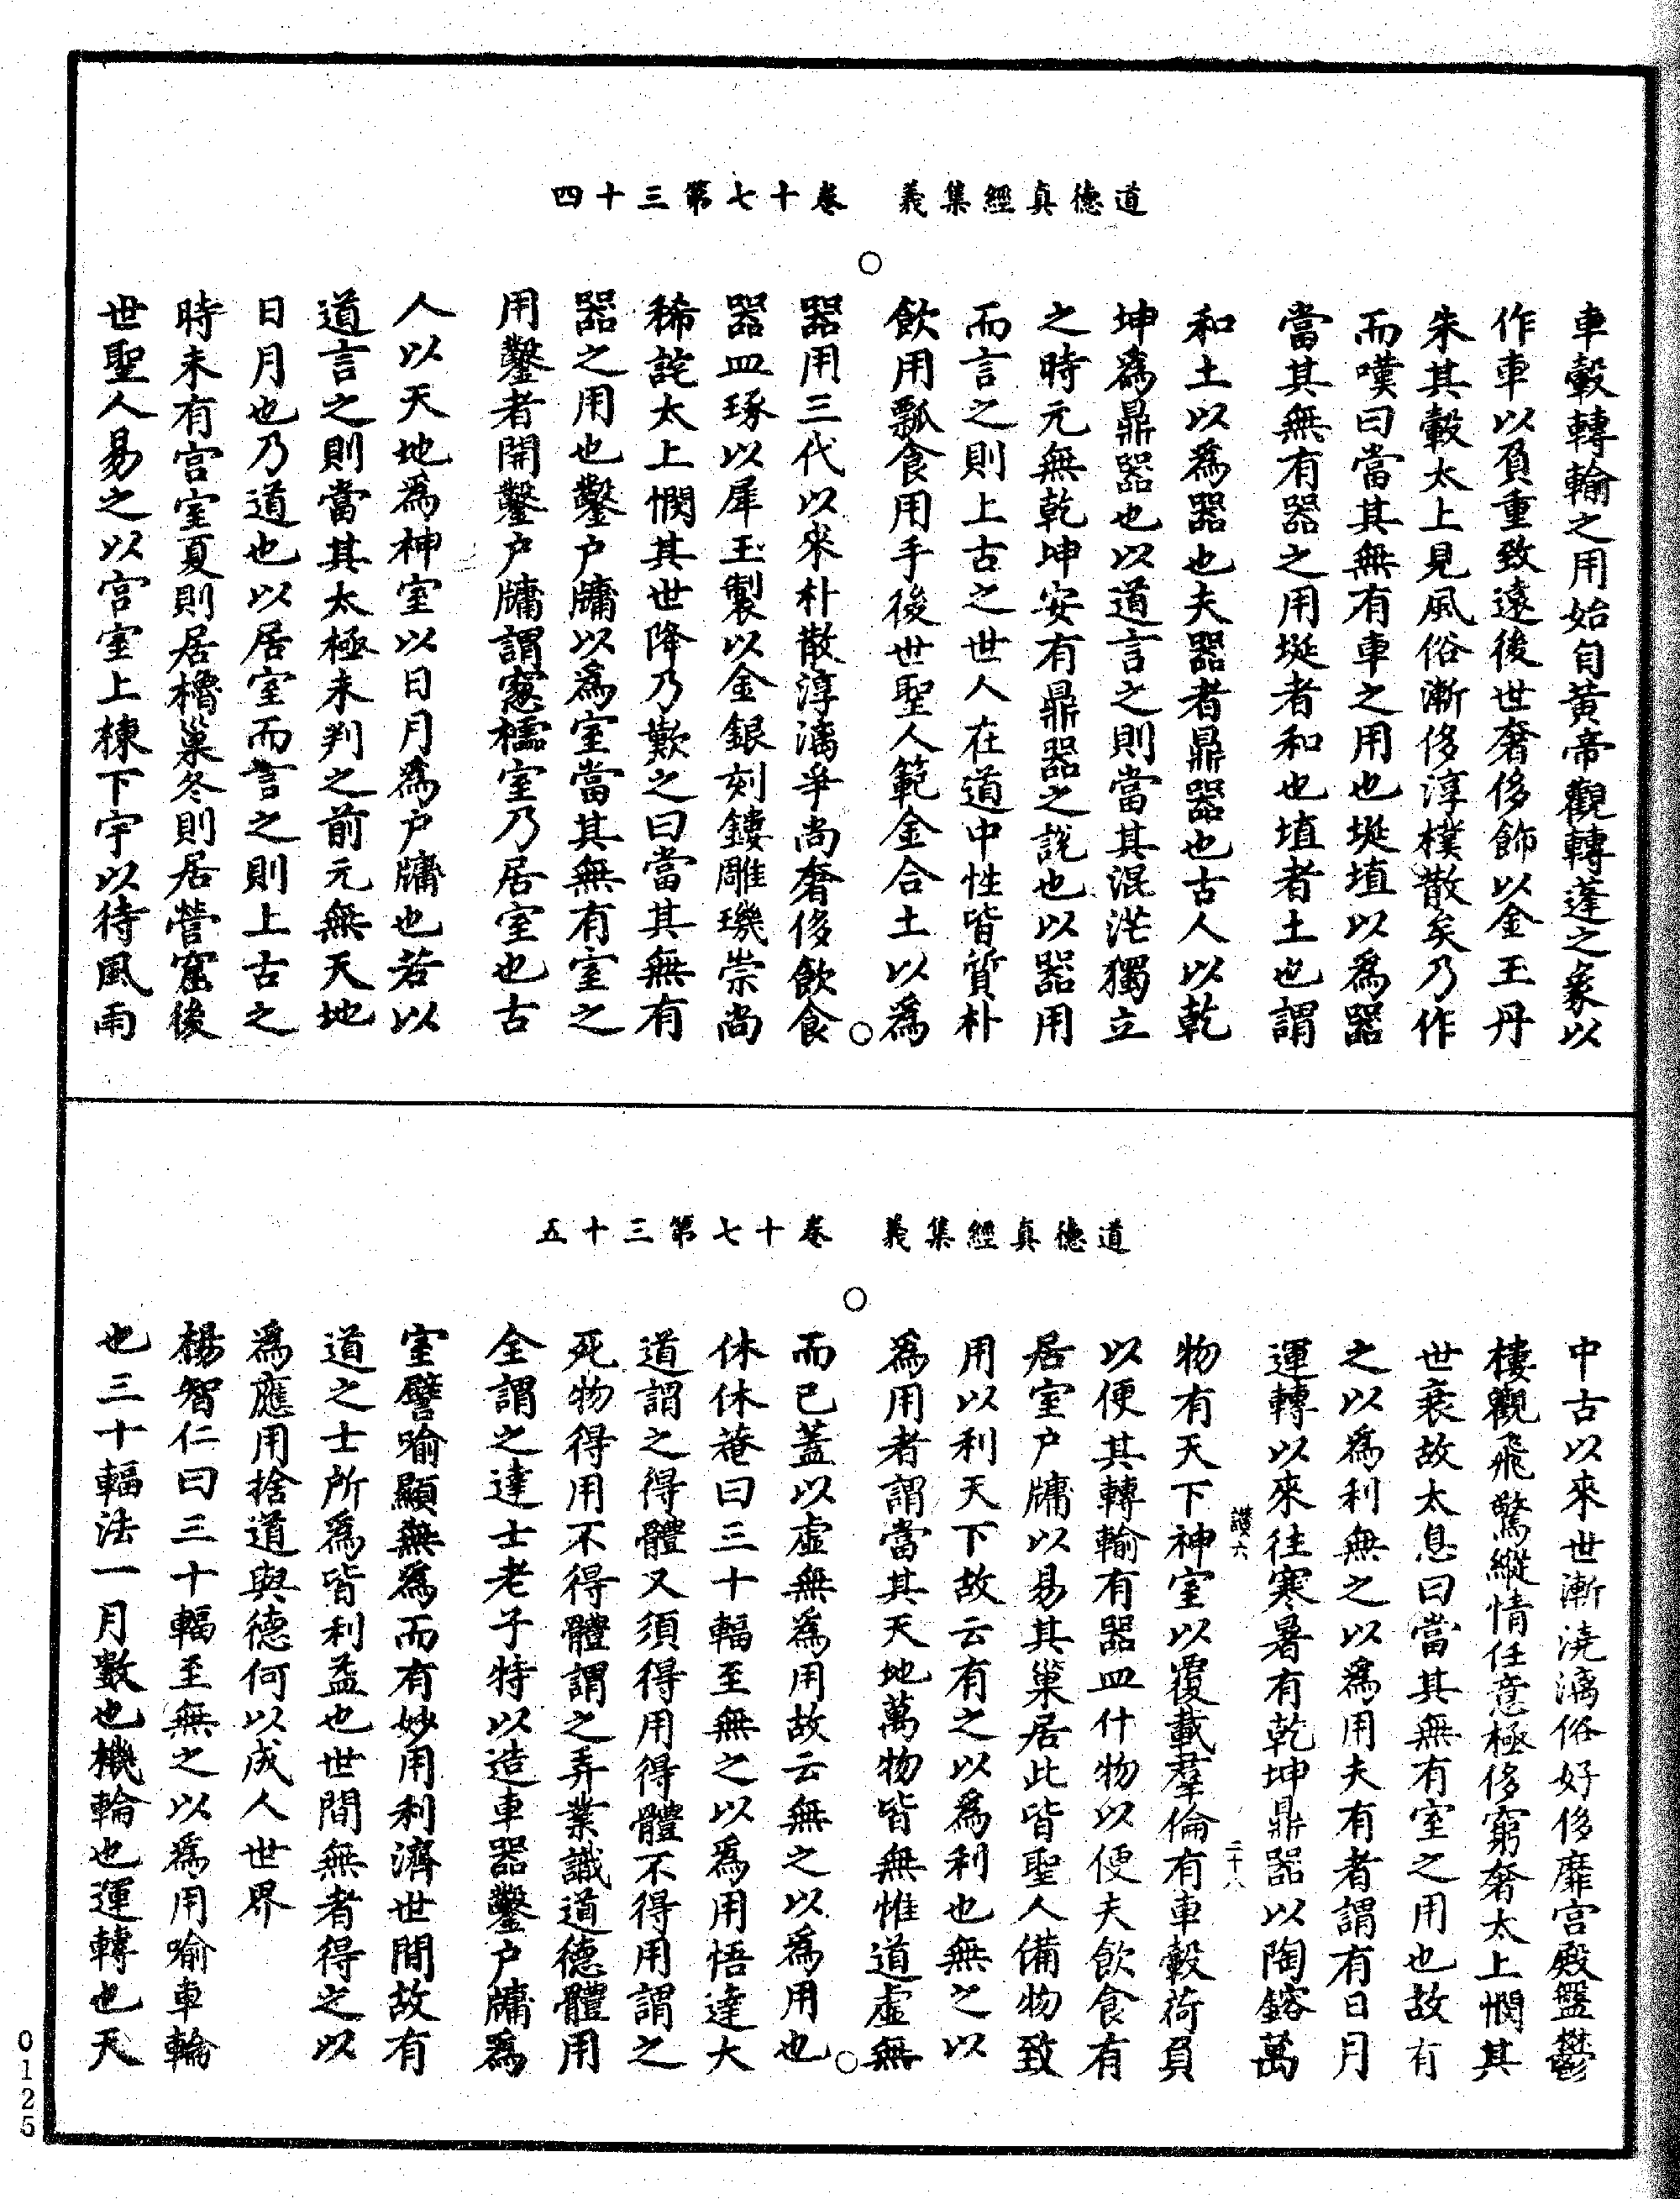 道德真經集義　卷十七第三十四
車轂轉輪之用始自黃帝觀轉蓬之象以
作車以負重致遠後世奢侈飾以金玉丹
朱其轂太上見風俗漸侈淳樸散矣乃作
而嘆曰當其無有車之用也埏埴以為器
當其無有器之用埏者和也埴者土也謂
和土以為器也夫器者鼎器也古人以乾
坤為鼎器也以道言之則當其混茫獨立
之時元無乾坤安有鼎器之說也以器用
而言之則上古之世人在道中性皆質朴
飲用瓢食用手後世聖人範金合土以為
器用三代以來朴散淳漓爭尚奢侈飲食
器皿琢以犀玉製以金銀刻鏤雕璣崇尚
稀詫太上憫其世降乃歎之曰當其無有
器之用也鑿户牖以為室當其無有室之
用鑿者開鑿户牖謂窻櫺室乃居室也古
人以天地為神室以日月為户牖也若以
道言之則當其太極未判之前元無天地
日月也乃道也以居室而言之則上古之
時未有宫室夏則居櫓巢冬則居營窟後
世聖人易之以宫室上棟下宇以待風雨
道德真經集義　卷十七第三十五
中古以來世漸澆漓俗好侈靡宫殿盤鬱
樓觀飛驚縱情任意極侈窮奢太上憫其
世衰故太息曰當其無有室之用也故有
之以為利無之以為用夫有者謂有日月
運轉以來往寒暑有乾坤鼎器以陶鎔萬
讃六　二十八
物有天下神室以覆載羣倫有車轂荷負
以便其轉輸有器皿什物以便夫飲食有
居室户牖以易其巢居此皆聖人備物致
用以利天下故云有之以為利也無之以
為用者謂當其天地萬物皆無惟道虛無
而已蓋以虛無為用故云無之以為用也
休休菴曰三十輻至無之以為用悟達大
道謂之得體又須得用得體不得用謂之
死物得用不得體謂之弄業識道德體用
全謂之達士老子特以造車器鑿户牖為
室譬喻顯無為而有妙用利濟世間故有
道之士所為皆利益也世間無者得之以
為應用捨道與德何以成人世界
楊智仁曰三十輻至無之以為用喻車輪
也三十輻法一月數也機輪也運轉也天
0125